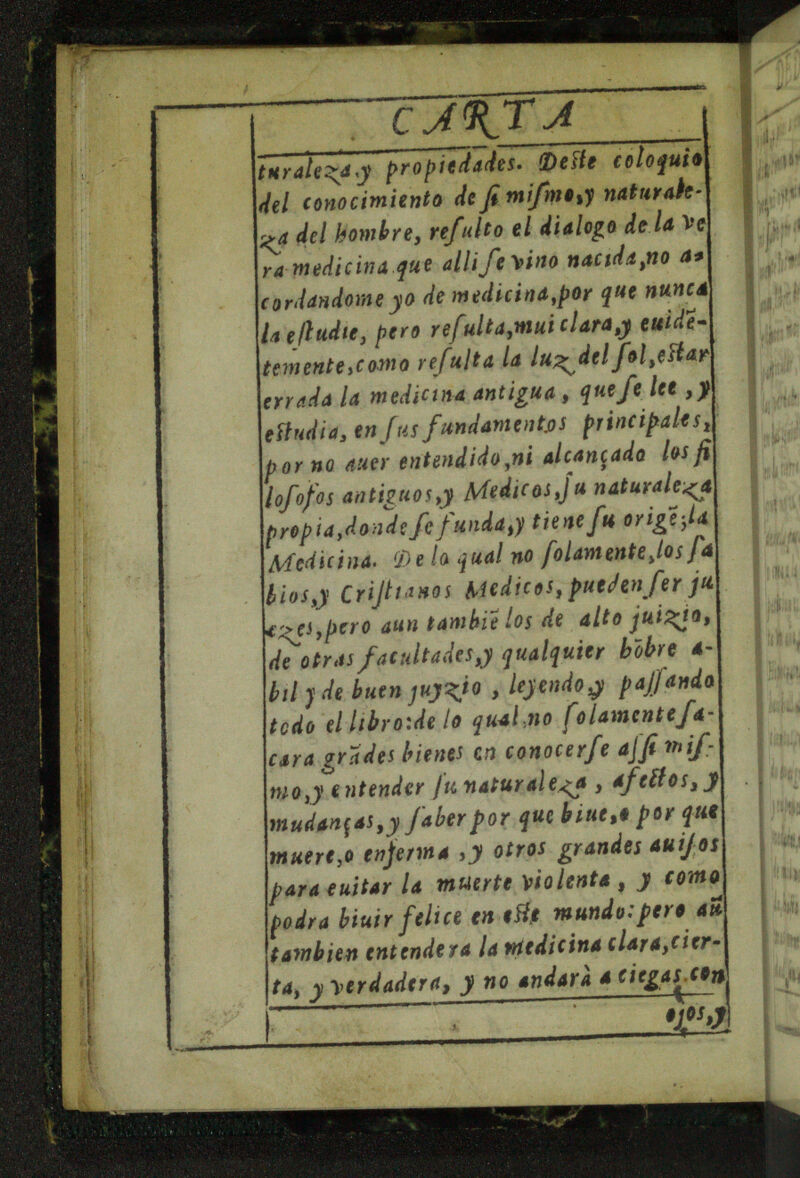 CARTA
turaleza, y propiedades. Deste coloquio
del conocimiento de ſi miſmo, y naturale-
za del hombre, reſulto el dialogo de la Ve
ra medicina que alli ſe vino nacida, no a-
cordandome yo de medicina, por que nunca
la eſtudie, pero reſulta, mui clara, y euidē-
temente, como reſulta la luz del ſol, eſtar
errada la medicina antigua, que ſe lee, y
eſtudia, en ſus fundamentos principales,
por no auer entendido, ni alcançado los fi
loſofos antiguos, y Medicos, ſu naturaleza
propia, donde ſe funda, y tiene ſu origē, la
Medicina. De la qual no ſolamente, los ſa
bios, y Criſtianos Medicos, pueden ſer ju
ezes, pero aun tambiē los de alto juizio,
de otras facultades, y qualquier hōbre a-
bil y de buen juyzio, leyendo, y paſſando
todo el libro: de lo qual, no ſolamente ſa-
cara grādes bienes en conocerſe aſſi miſ-
mo, y entender ſu naturaleza, afectos, y
mudanças, y ſaber por que biue, o por que
muere, o enferma, y otros grandes auiſos
para euitar la muerte violenta, y como
podra biuir felice en eſte mundo: pero aū
tambien entendera la medicina clara, cier-
ta, y verdadera, y no andarà a ciegas con
ojos, y